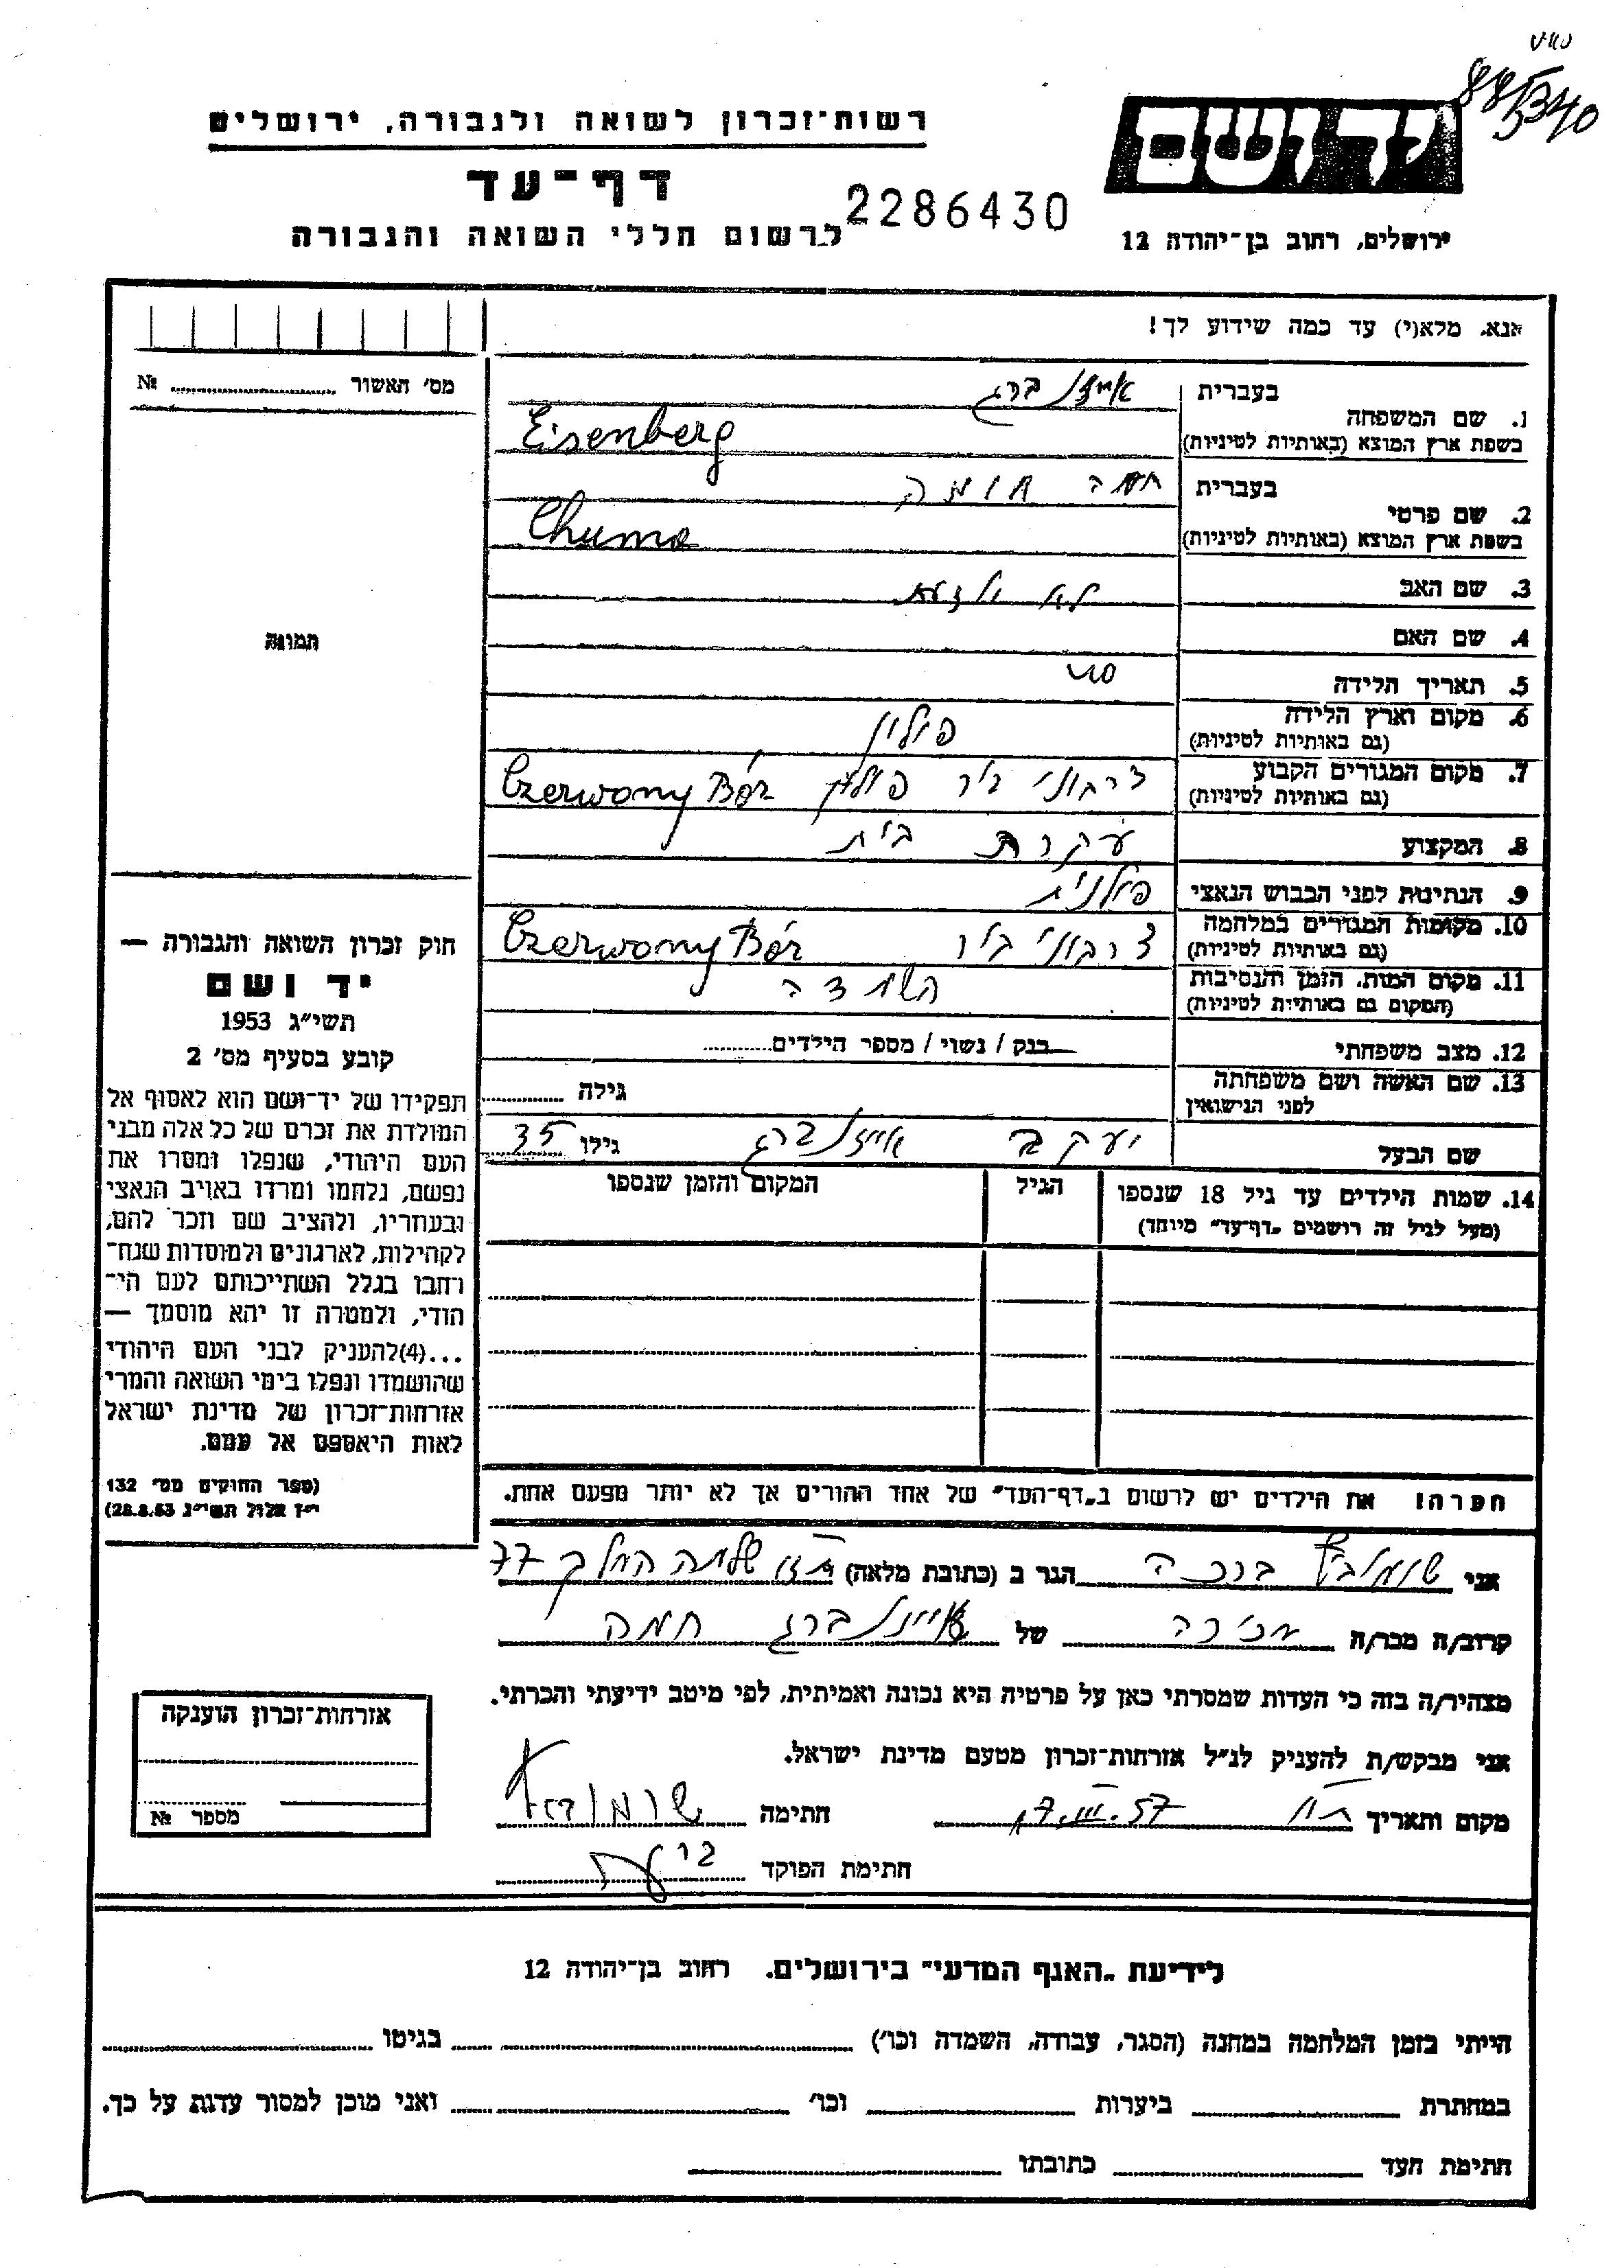 885340
יד ושם
רשות־זכרון לשואה ולגבורה, ירושלים
דף־עד
2286430
לרשום חללי השואה והגבורה
ירושלים, רחוב בן־יהודה 12
אנא, מלא(י) עד כמה שידוע לך!
מס׳ האשור № ....................
1. שם המשפחה
בעברית
אייזנברג
בשפת ארץ המוצא (באותיות לטיניות)
Eisenberg
2. שם פרטי
בעברית
חמה חומה
בשפת ארץ המוצא (באותיות לטיניות)
Chuma
3. שם האב
4. שם האם
5. תאריך הלידה
6. מקום וארץ הלידה
(גם באותיות לטיניות)
פולין
7. מקום המגורים הקבוע
(גם באותיות לטיניות)
צרבוני בור פולין Czerwony Bór
8. המקצוע
עקרת בית
9. הנתינות לפני הכבוש הנאצי
פולנית
10. מקומות המגורים במלחמה
(גם באותיות לטיניות)
צרבוני בור Czerwony Bór
11. מקום המות, הזמן והנסיבות
(המקום גם באותיות לטיניות)
השמדה
12. מצב משפחתי
רנק / נשוי / מספר הילדים..........
13. שם האשה ושם משפחתה
לפני הנישואין
גילה ............
שם הבעל
יעקב אייזנברג גילו 35
14. שמות הילדים עד גיל 18 שנספו
(מעל לגיל זה רושמים „דף־עד” מיוחד)
הגיל
המקום והזמן שנספו
תמונה
חוק זכרון השואה והגבורה —
יד ושם
תשי״ג 1953
קובע בסעיף מס׳ 2
תפקידו של יד־ושם הוא לאסוף אל
המולדת את זכרם של כל אלה מבני
העם היהודי, שנפלו ומסרו את
נפשם, נלחמו ומרדו באויב הנאצי
ובעוזריו, ולהציב שם וזכר להם,
לקהילות, לארגונים ולמוסדות שנח־
רחבו בגלל השתייכותם לעם הי־
הודי, ולמטרה זו יהא מוסמך —
...(4)להעניק לבני העם היהודי
שהושמדו ונפלו בימי השואה והמרי
אזרחות־זכרון של מדינת ישראל
לאות היאספם אל עמם.
(ספר החוקים מס׳ 132
י״ז אלול תשי״ג 28.8.53)
הערה! את הילדים יש לרשום ב„דף־העד” של אחד ההורים אך לא יותר מפעם אחת.
אני ברכה הגר ב (כתובת מלאה) שלמה המלך 77
קרוב/ה מכר/ה מכירה של אייזנברג חמה
מצהיר/ה בזה כי העדות שמסרתי כאן על פרטיה היא נכונה ואמיתית, לפי מיטב ידיעתי והכרתי.
אני מבקש/ת להעניק לנ״ל אזרחות־זכרון מטעם מדינת ישראל.
מקום ותאריך 17.III.57 חתימה
חתימת הפוקד
אזרחות־זכרון הוענקה
מספר №
לידיעת „האגף המדעי” בירושלים. רחוב בן־יהודה 12
הייתי בזמן המלחמה במחנה (הסגר, עבודה, השמדה וכו׳) .................... בגיטו ....................
במחתרת .................... ביערות .................... וכו׳ .................... ואני מוכן למסור עדות על כך.
חתימת העד .................... כתובתו ....................